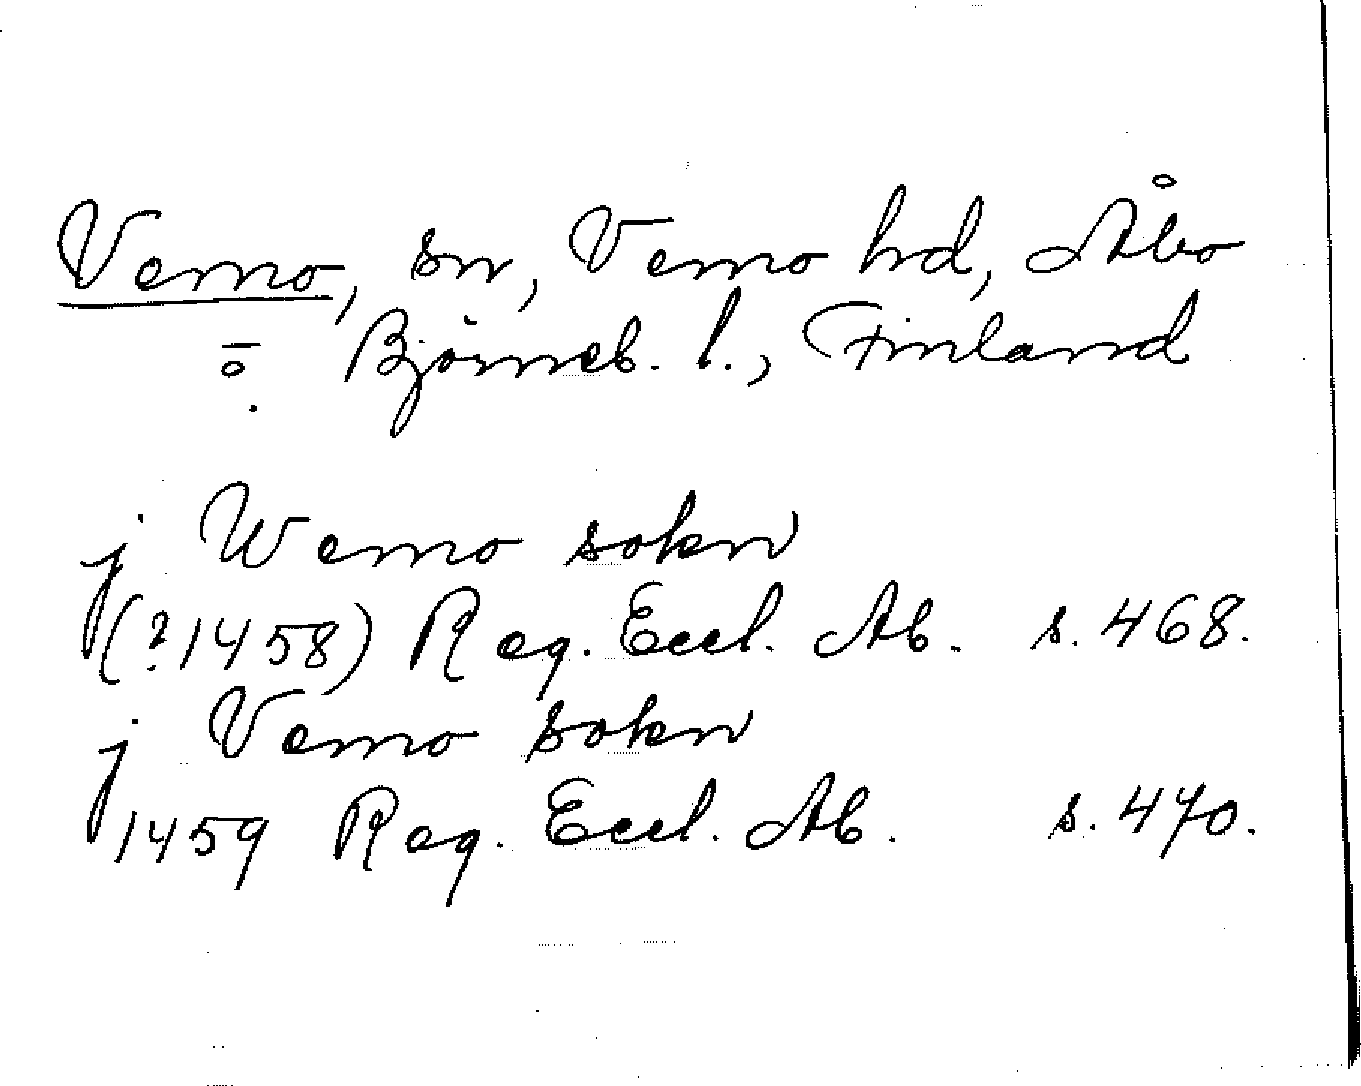 Vemo, sn, Vemo hd, Åbo
o Björneb. l., Finland
j Wemo sokn
(?1458) Reg. Eccl. Ab. s. 468.
j Vemo sokn
1459 Reg. Eccl. Ab. s. 470.